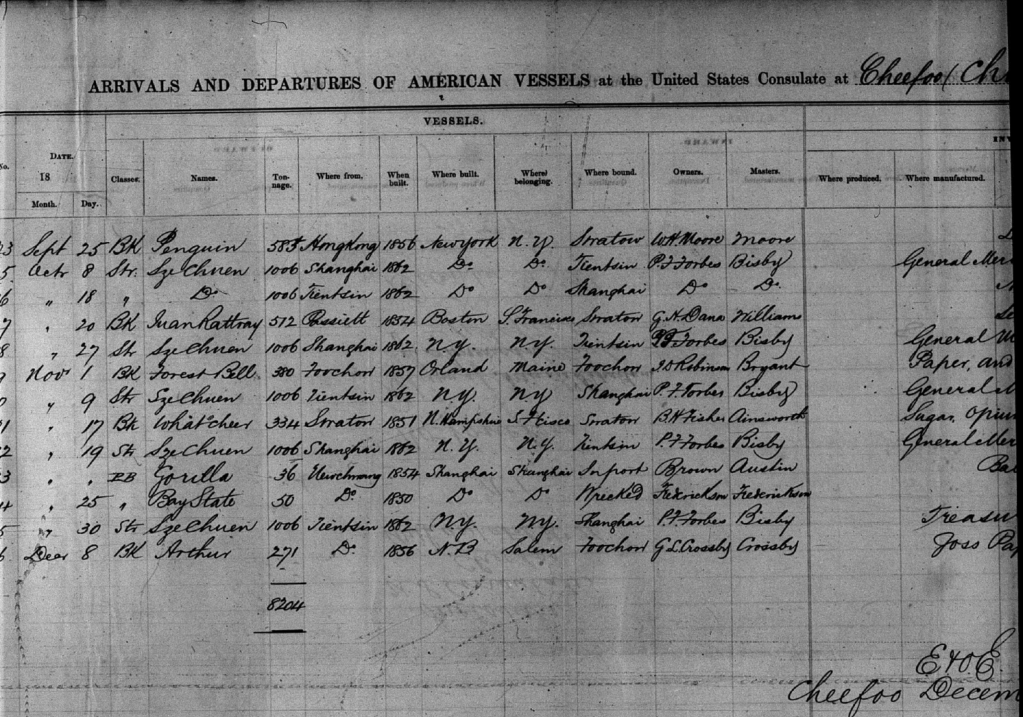 ARRIVALS AND DEPARTURES OF AMERICAN VESSELS at the United States Consulate at Cheefoo (Ch
VESSELS. INV
No. DATE. 18 Month. Day. Classes. Names. Tonnage. Where from. When built. Where built. Where belonging. Where bound. Owners. Masters. Where produced. Where manufactured.
23 Sept 25 Bk Penguin 585 Hongkong 1856 New york N.Y. Swatow W.H. Moore Moore
5 Octr 8 Str. Sze Chuen 1006 Shanghai 1862 Do Do Tientsin P.F. Forbes Bisby General Mer
6 " 18 " Do 1006 Tientsin 1862 Do Do Shanghai Do Do
7 " 20 Bk Juan Rattray 512 Possiett 1854 Boston S. Francisco Swatow G.H. Dana Williams
8 " 27 Str Sze Chuen 1006 Shanghai 1862 N.Y. N.Y. Tientsin P.F. Forbes Bisby General M
9 Novr 1 Bk Forest Bell 380 Foochow 1857 Orland Maine Foochow Robinson Bryant Paper, and
" 9 Str Sze Chuen 1006 Tientsin 1862 N.Y. N.Y. Shanghai P.F. Forbes Bisby General M
1 " 17 Bk What cheer 334 Swatow 1851 N. Hampshire S. Fisco Swatow B.H. Fisher Ainsworth Sugar, Opium
2 " 19 Str Sze Chuen 1006 Shanghai 1862 N.Y. N.Y. Tientsin P.F. Forbes Bisby General Mer
3 " " PB Gorilla 36 Newchwang 1854 Shanghai Shanghai In port Brown Austin Bal
4 " 25 " Bay State 50 Do 1850 Do Do Wrecked Fredrickson Frederickson
5 " 30 Str Sze Chuen 1006 Tientsin 1862 N.Y. N.Y. Shanghai P.F. Forbes Bisby Treasu
6 Decr 8 Bk Arthur 271 Do 1856 N.B Salem Foochow G.L. Crossby Crossby Joss Pap
8204
E & O E.
Cheefoo Decem